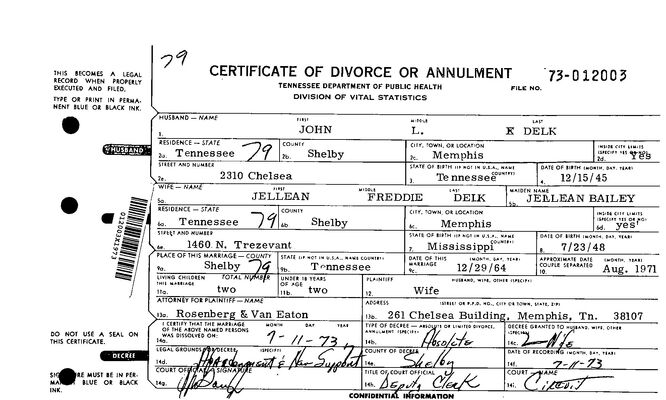 79
CERTIFICATE OF DIVORCE OR ANNULMENT
73-012003
TENNESSEE DEPARTMENT OF PUBLIC HEALTH
FILE NO.
DIVISION OF VITAL STATISTICS
THIS BECOMES A LEGAL
RECORD WHEN PROPERLY
EXECUTED AND FILED.
TYPE OR PRINT IN PERMA-
NENT BLUE OR BLACK
INK.
HUSBAND — NAME FIRST MIDDLE LAST
1. JOHN L. DELK
HUSBAND
RESIDENCE — STATE COUNTY CITY, TOWN, OR LOCATION INSIDE CITY LIMITS
(SPECIFY YES OR NO)
2a. Tennessee 79 2b. Shelby 2c. Memphis 2d. Yes
STREET AND NUMBER STATE OF BIRTH (IF NOT IN U.S.A., NAME COUNTRY) DATE OF BIRTH (MONTH, DAY, YEAR)
2e. 2310 Chelsea 3. Tennessee 4. 12/15/45
WIFE — NAME FIRST MIDDLE LAST MAIDEN NAME
5a. JELLEAN FREDDIE DELK 5b. JELLEAN BAILEY
RESIDENCE — STATE COUNTY CITY, TOWN, OR LOCATION INSIDE CITY LIMITS
(SPECIFY YES OR NO)
6a. Tennessee 79 6b. Shelby 6c. Memphis 6d. yes
STREET AND NUMBER STATE OF BIRTH (IF NOT IN U.S.A., NAME COUNTRY) DATE OF BIRTH (MONTH, DAY, YEAR)
6e. 1460 N. Trezevant 7. Mississippi 8. 7/23/48
PLACE OF THIS MARRIAGE — COUNTY STATE (IF NOT IN U.S.A., NAME COUNTRY) DATE OF THIS MARRIAGE (MONTH, DAY, YEAR) APPROXIMATE DATE COUPLE SEPARATED (MONTH, YEAR)
9a. Shelby 79 9b. Tennessee 9c. 12/29/64 10. Aug. 1971
LIVING CHILDREN THIS MARRIAGE TOTAL NUMBER UNDER 18 YEARS OF AGE PLAINTIFF HUSBAND, WIFE, OTHER (SPECIFY)
11a. two 11b. two 12. Wife
ATTORNEY FOR PLAINTIFF — NAME ADDRESS (STREET OR R.F.D. NO., CITY OR TOWN, STATE, ZIP)
13a. Rosenberg & Van Eaton 13b. 261 Chelsea Building, Memphis, Tn. 38107
I CERTIFY THAT THE MARRIAGE
OF THE ABOVE NAMED PERSONS
WAS DISSOLVED ON: MONTH DAY YEAR
14a. 7-11-73
TYPE OF DECREE — ABSOLUTE OR LIMITED DIVORCE, ANNULMENT (SPECIFY)
14b. Absolute
DECREE GRANTED TO HUSBAND, WIFE, OTHER (SPECIFY)
14c. Wife
DO NOT USE A SEAL ON
THIS CERTIFICATE.
DECREE
LEGAL GROUNDS FOR DECREE (SPECIFY) COUNTY OF DECREE DATE OF RECORDING (MONTH, DAY, YEAR)
14d. Abandonment & Non Support Shelby 7-11-73
COURT OFFICIAL SIGNATURE TITLE OF COURT OFFICIAL COURT — NAME
14g. 14h. Deputy Clerk 14i. Circuit
SIGNATURE MUST BE IN PER-
MANENT BLUE OR BLACK
INK.
CONFIDENTIAL INFORMATION
012003X1973